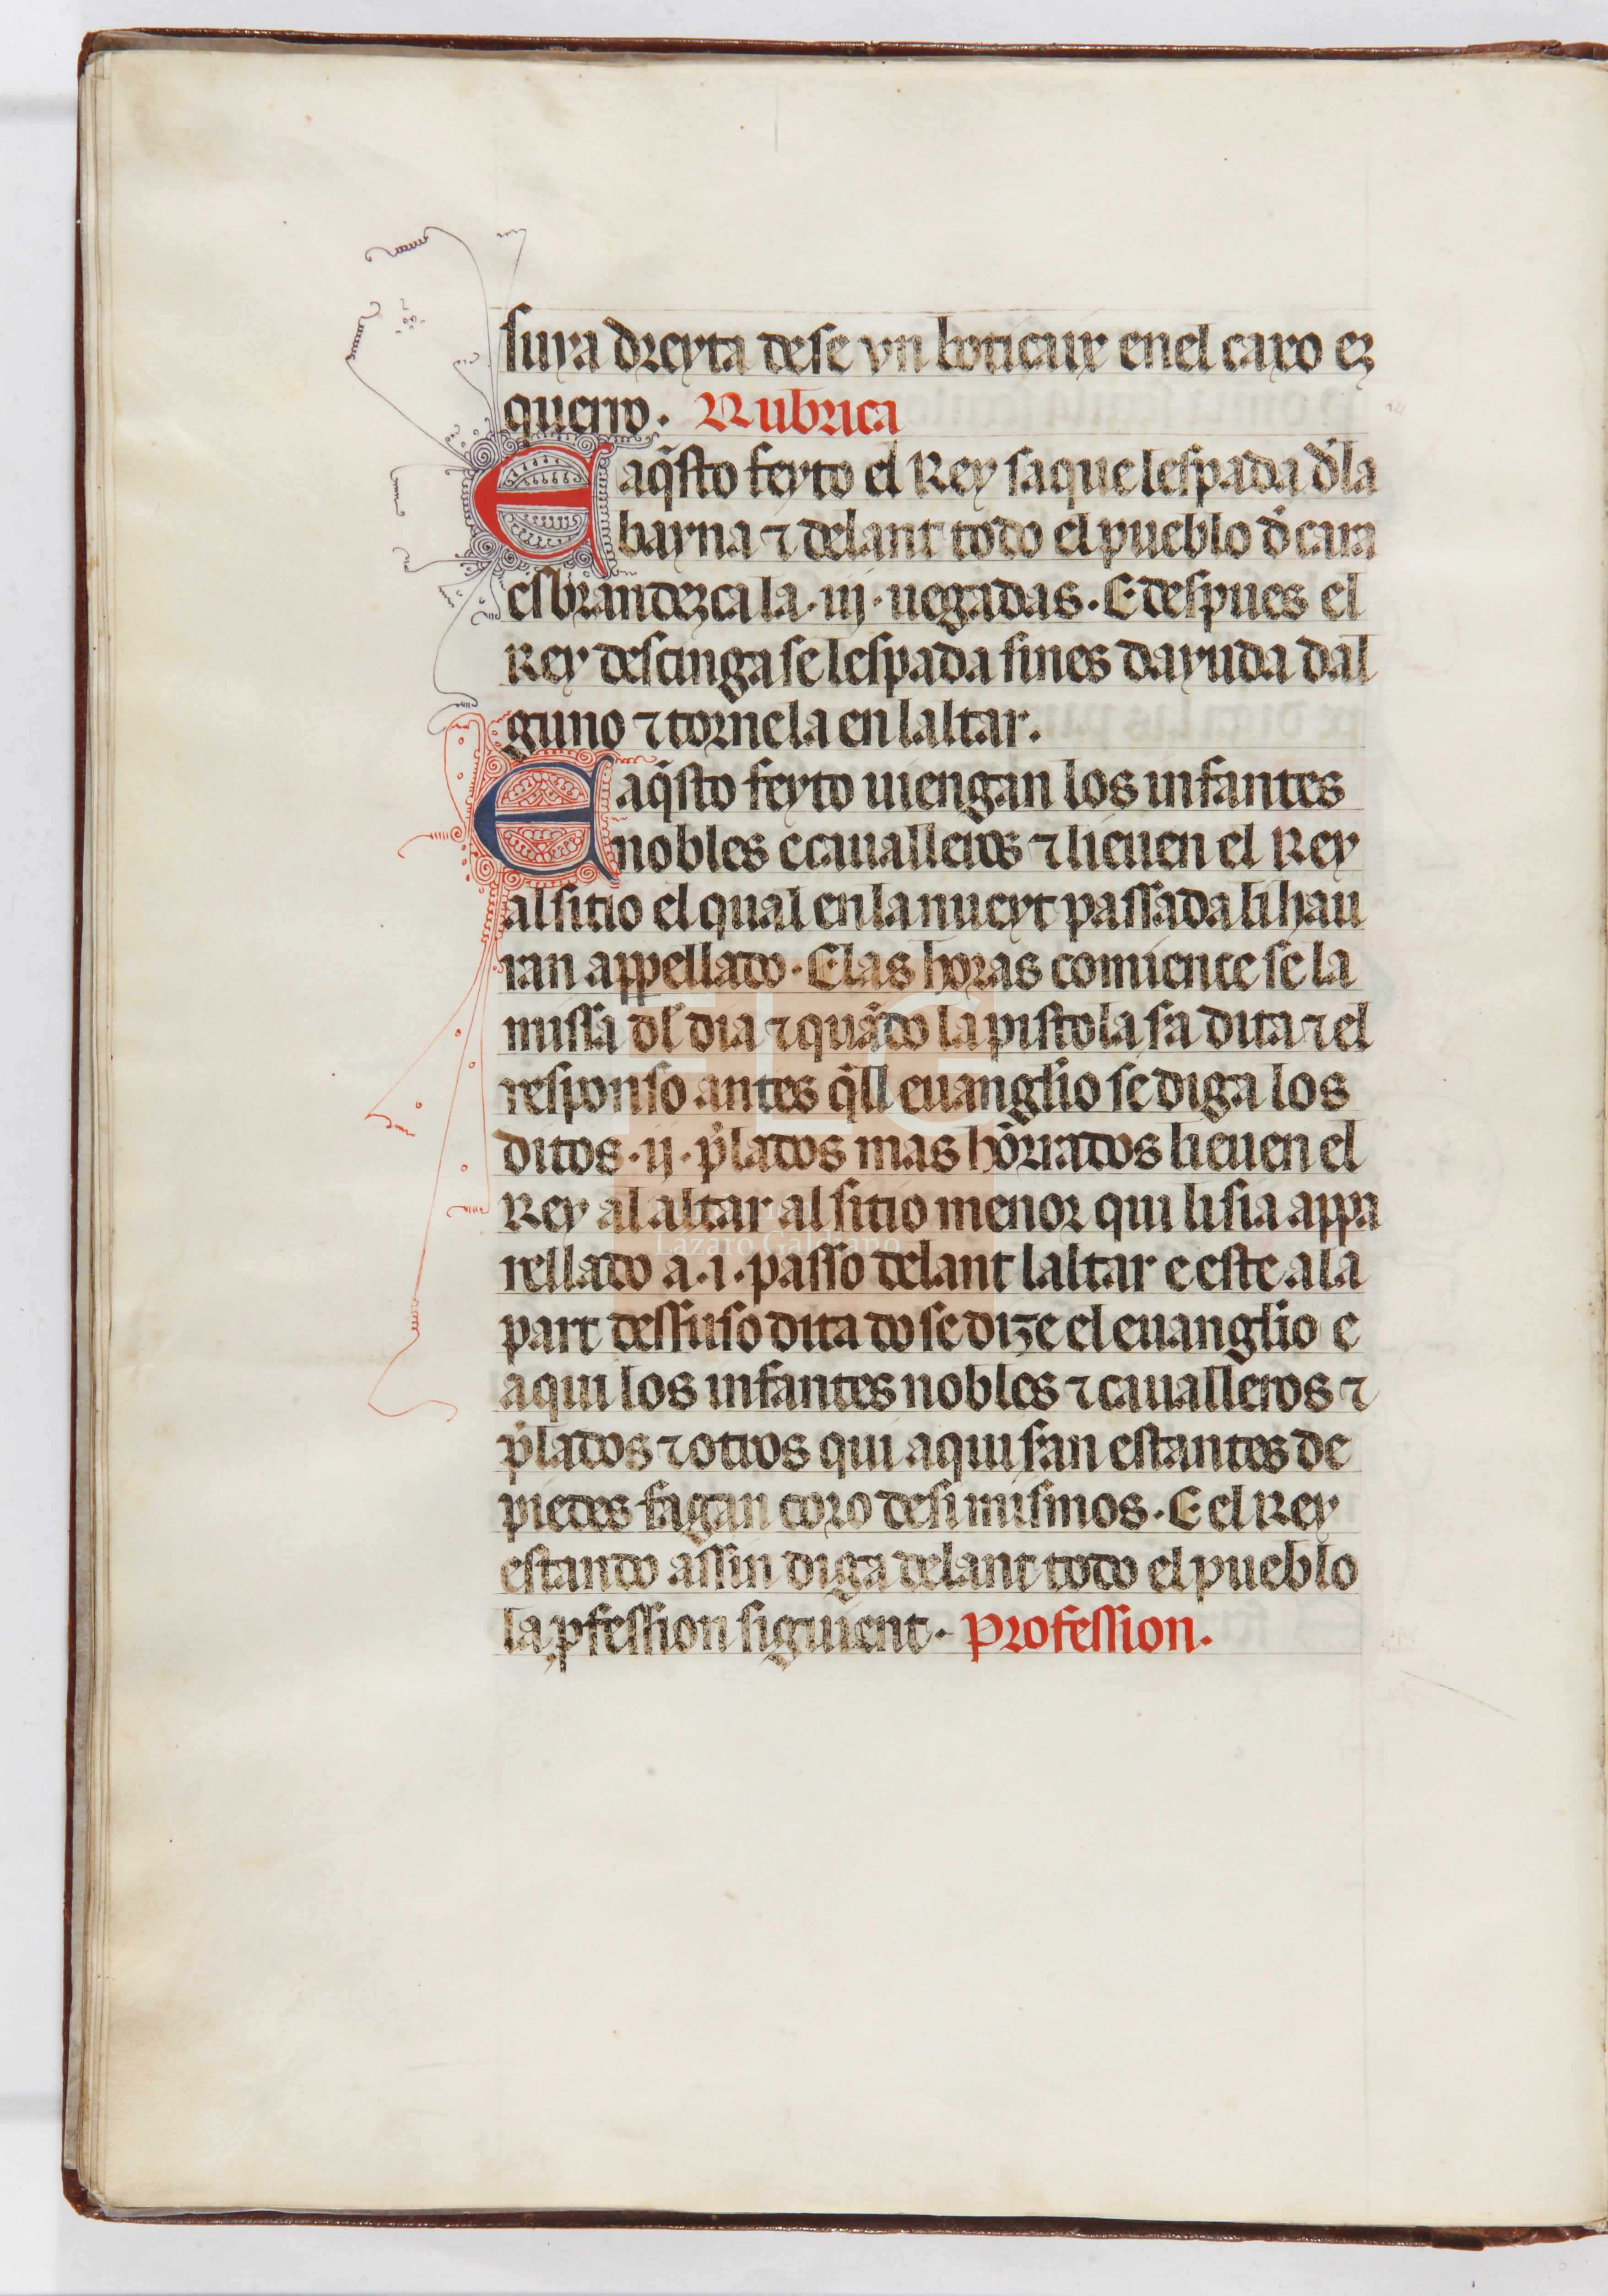 suya dreyta dese vn boticaux enel caxo ez
querro. Rubrica
E aq̃sto feyto el Rey saque lespada d̃la
bayna ⁊ delant todo el pueblo d̃ cara
esbrandezca la .iij. uegadas. E despues el
Rey descinga se lespada sines dayuda dal
guno ⁊ tornela en laltar.
E aq̃sto feyto uiengan los infantes
nobles e cauалleros ⁊ lieuen el Rey
al sitio el qual en la nueyt passada li hau
ran appellado. E las horas comience se la
missa dl̃ dia ⁊ quãdo la pistola sa dita ⁊ el
responso antes q̃ll euanglĩo se diga los
ditos .ij. p̃lados mas hõrrados lieuen el
Rey al altar al sitio menor qui li sia appa
rellado a .i. passo delant laltar e este a la
part dessuso dita do se dize el euanglĩo e
aqui los infantes nobles ⁊ caualleros ⁊
p̃lados ⁊ otros qui aqui san estantes de
piedes fagan coro de si mismos. E el Rey
estando assin diga delant todo el pueblo
la ꝓfession siguient. Profession.
Lázaro Galdiano